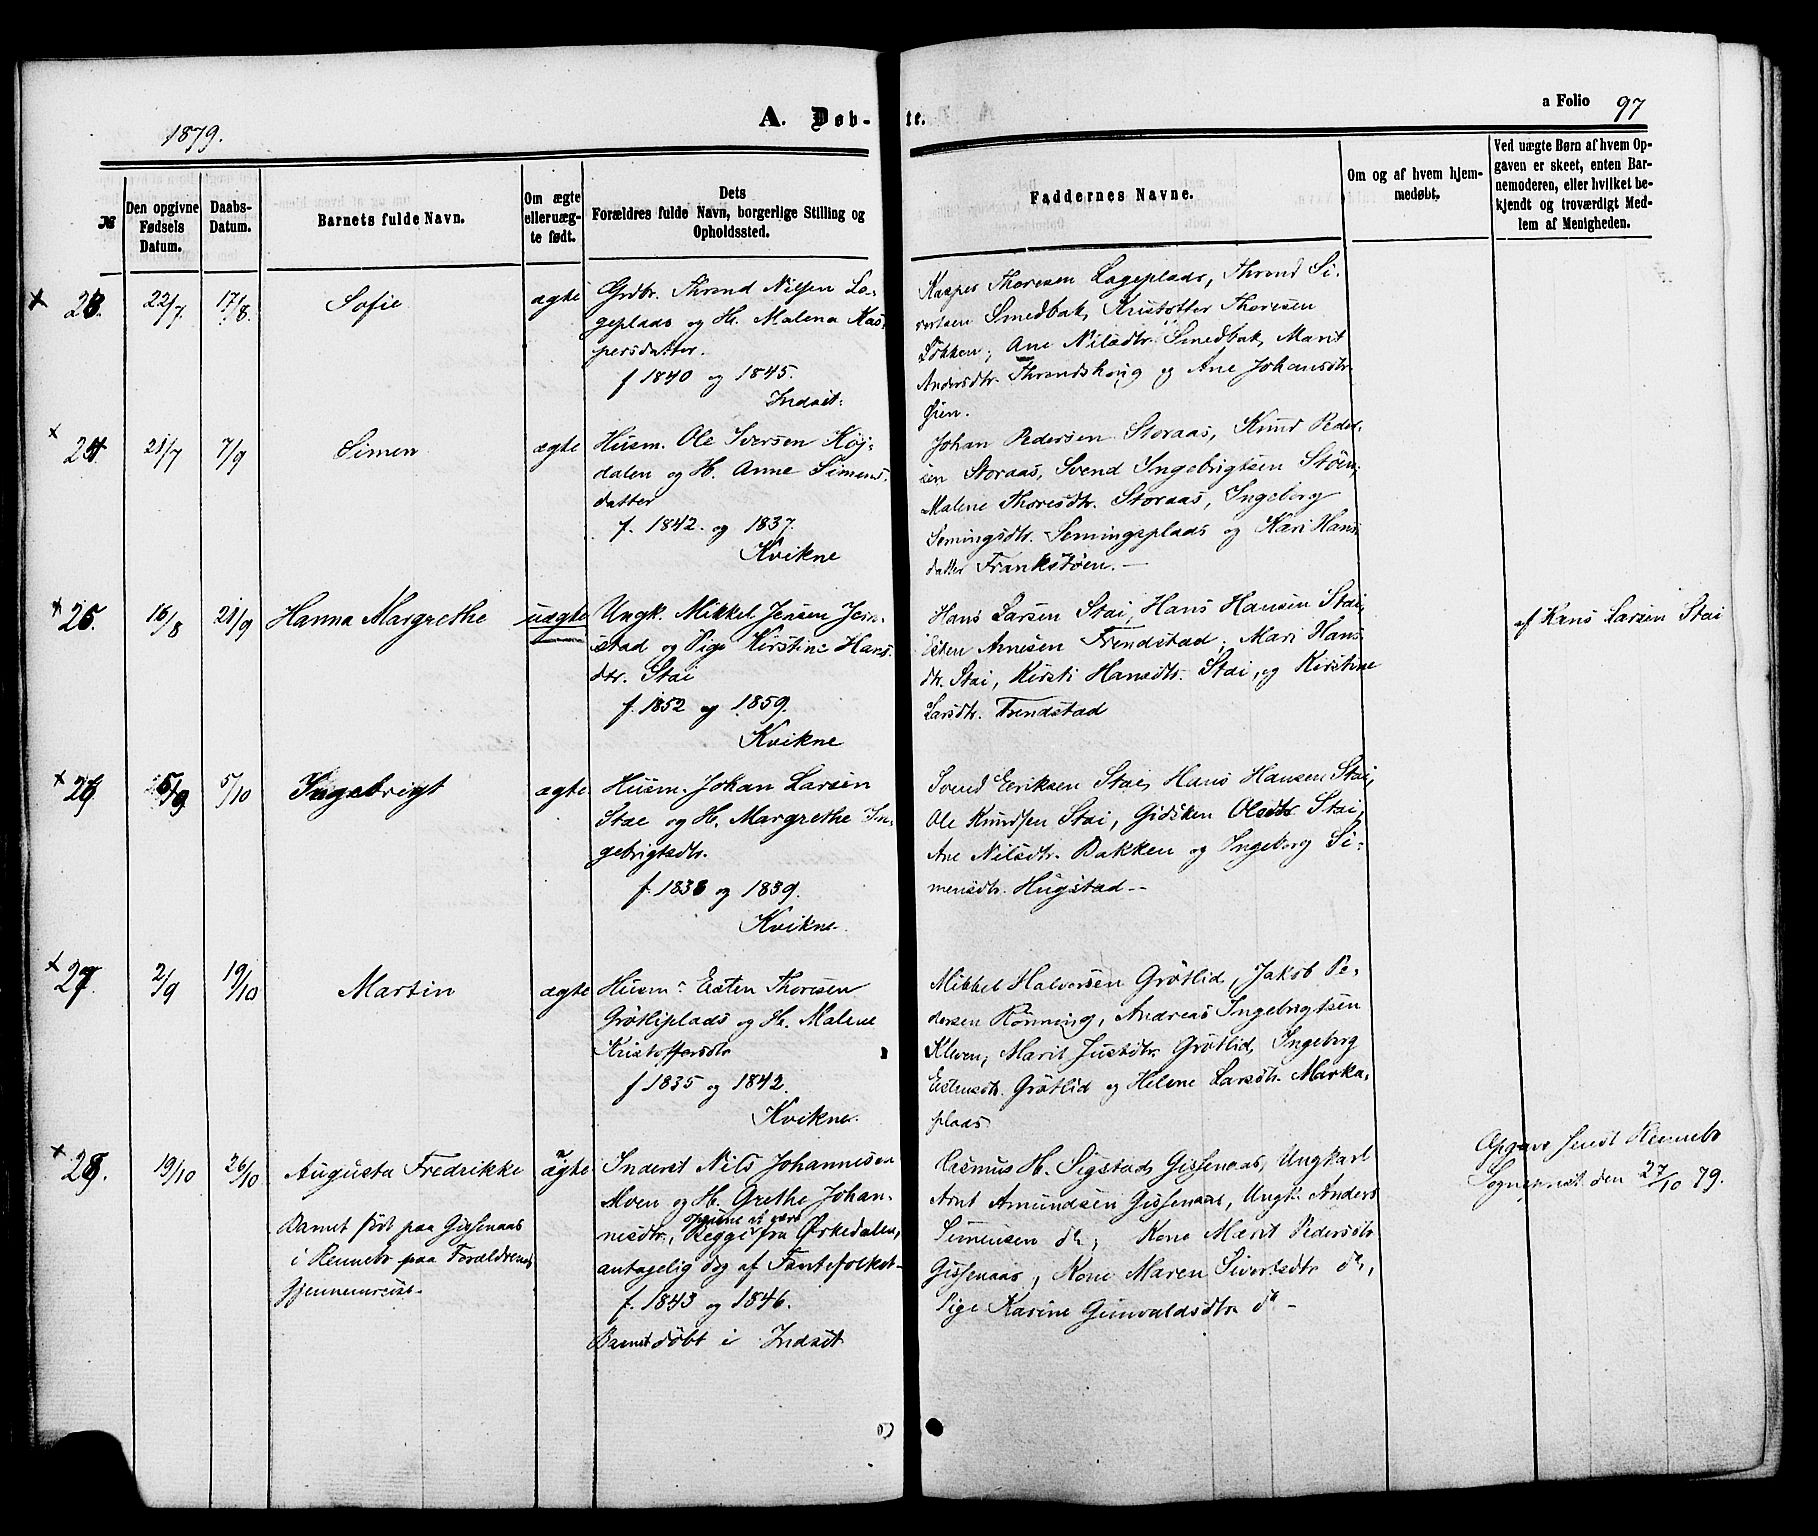 1879.
A. Døb-
te.
a Folio 97
№
Den opgivne
Fødsels
Datum.
Daabs-
Datum.
Barnets fulde Navn.
Om ægte
elleruæg-
te født.
Dets
Forældres fulde Navn, borgerlige Stilling og
Opholdssted.
Faddernes Navne.
Om og af hvem hjem-
medøbt.
Ved uægte Børn af hvem Op-
gaven er skeet, enten Bar-
nemoderen, eller hvilket be-
kjendt og troværdigt Med-
lem af Menigheden.
23. 22/7 17/8. Sofie ægte
Grdbr. Thrond Nilsen La-
geplads og H. Malena Kas-
persdatter.
f 1840 og 1845.
Indset.
Kasper Thoresen Lageplads, Thrond Si-
vertsen Smedbak, Kristoffer Thoresen
Løkken, Ane Nilsdtr. Smedbak, Marit
Andersdtr. Throndshoug og Ane Johansdtr
Øien.
24. 21/7 7/9 Simen ægte
Husm. Ole Iversen Køj-
dalen og H. Anne Simens-
datter
f. 1842. og 1837.
Kvikne
Johan Pedersen Storaas, Knud Peder-
sen Storaas, Svend Ingebrigtsen Støen,
Malene Thoresdtr. Storaas, Ingeborg
Semingsdtr. Semingsplads og Kari Hans
datter Frankstøen. —
25. 16/8 21/9 Hanna Margrethe uægte
Ungk. Mikkel Jensen Jern-
stad og Pige Kirstine Hans
dtr. Stai
f. 1852 og 1859.
Kvikne
Hans Larsen Stai, Hans Hansen Stai,
Esten Arnesen Frendstad, Mari Hans
dtr. Stai, Kirsti Hansdtr. Stai, og Kirstine
Larsdtr. Frendstad
af Hans Larsen Stai
26. 5/9 5/10 Ingebrigt ægte
Husm. Johan Larsen
Stae og H. Margrethe In-
gebrigtsdtr.
f. 1838 og 1839.
Kvikne.
Svend Eriksen Stai, Hans Hansen Stai,
Ole Knudsen Stai, Gidsken Olsdtr Stai,
Ane Nilsdtr. Bakken og Ingeborg Si-
mensdtr. Hugstad —
27. 2/9 19/10 Martin ægte
Husm. Eesten Thoresen
Grøtliplads og H. Malene
Kristoffersdtr
f 1835 og 1842.
Kvikne.
Mikkel Halvorsen Grøtlid, Jakob Pe-
dersen Rønning, Andreas Ingebrigtsen
Kleven, Marit Justdtr. Grøtlid, Ingeborg
Estensdtr. Grøtlid og Helene Larsdtr. Marka-
plads.
28. 19/10 26/10 Augusta Fredrikke ægte
Barnet født paa Gissenaas
i Rennebo paa Forældrenes
Gjennemreise.
Inderst Nils Johannesen
Moen og H. Grethe Johan-
nesdtr., Begge fra Ørkedalen,
antagelig dog af Fantefolket —
f. 1843 og 1846.
Barnet døbt i Indset
Rasmus H. Sigstad, Gissenaas, Ungkarl
Arnt Amundsen Gissenaas, Ungk. Anders
Simensen do, Kone Marit Pedersdtr
Gissenaas, Kone Maren Sivertsdtr do,
Pige Karine Gunvaldsdtr do —
Opgave sendt Rennebo
Sogneprest den 27/10 79.